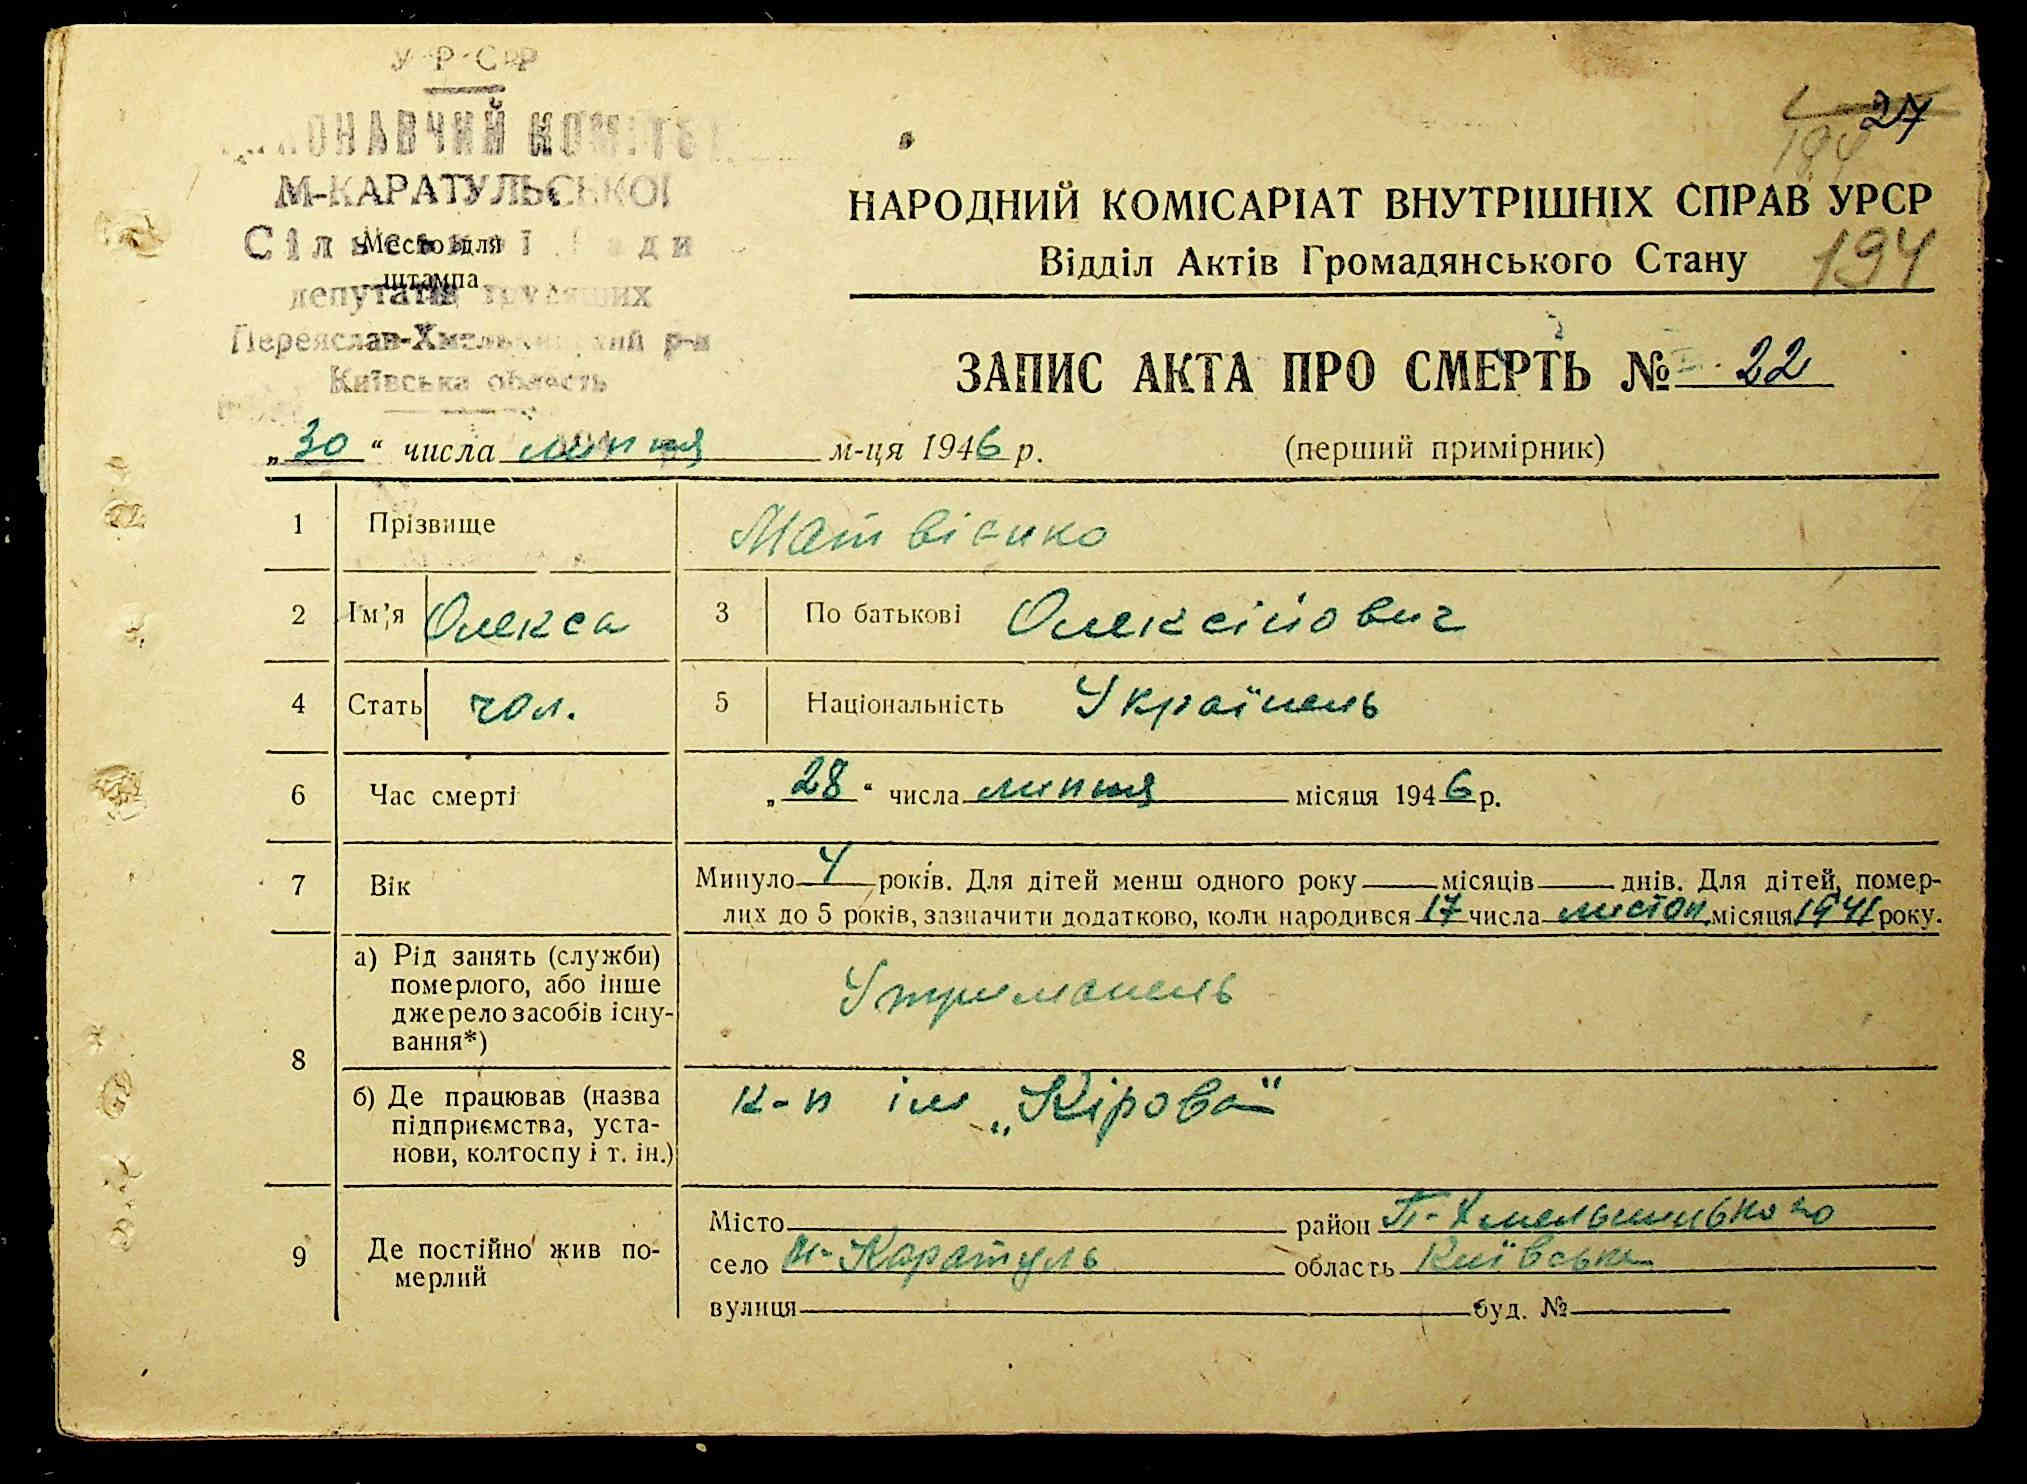 У Р С Р
ВИКОНАВЧИЙ КОМІТЕТ
М-КАРАТУЛЬСЬКОЇ
Сільської Ради
Место для
штампа
депутатів трудящих
Переяслав-Хмельницький р-н
Київська область
27
194
НАРОДНИЙ КОМІСАРІАТ ВНУТРІШНІХ СПРАВ УРСР
Відділ Актів Громадянського Стану
194
ЗАПИС АКТА ПРО СМЕРТЬ № 22
„30“ числа липня м-ця 1946 р.
(перший примірник)
1 Прізвище Матвієнко
2 Ім'я Олекса 3 По батькові Олексійович
4 Стать чол. 5 Національність Українець
6 Час смерті „28“ числа липня місяця 1946 р.
7 Вік Минуло 4 років. Для дітей менш одного року — місяців — днів. Для дітей, помер-
лих до 5 років, зазначити додатково, коли народився 17 числа листоп місяця 1941 року.
8 а) Рід занять (служби)
померлого, або інше
джерело засобів існу-
вання*)
Утриманець
б) Де працював (назва
підприємства, уста-
нови, колгоспу і т. ін.)
к-п ім „Кірова"
9 Де постійно жив по-
мерлий
Місто район П-Хмельницького
село М-Каратуль область Київська
вулиця буд. №